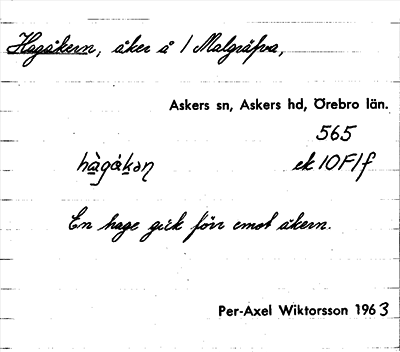 Hagåkern, åker å 1 Malgräfva,
Askers sn, Askers hd, Örebro län.
565
hàgåkəṇ ek 10F1f
En hage gick förr emot åkern.
Per-Axel Wiktorsson 1963